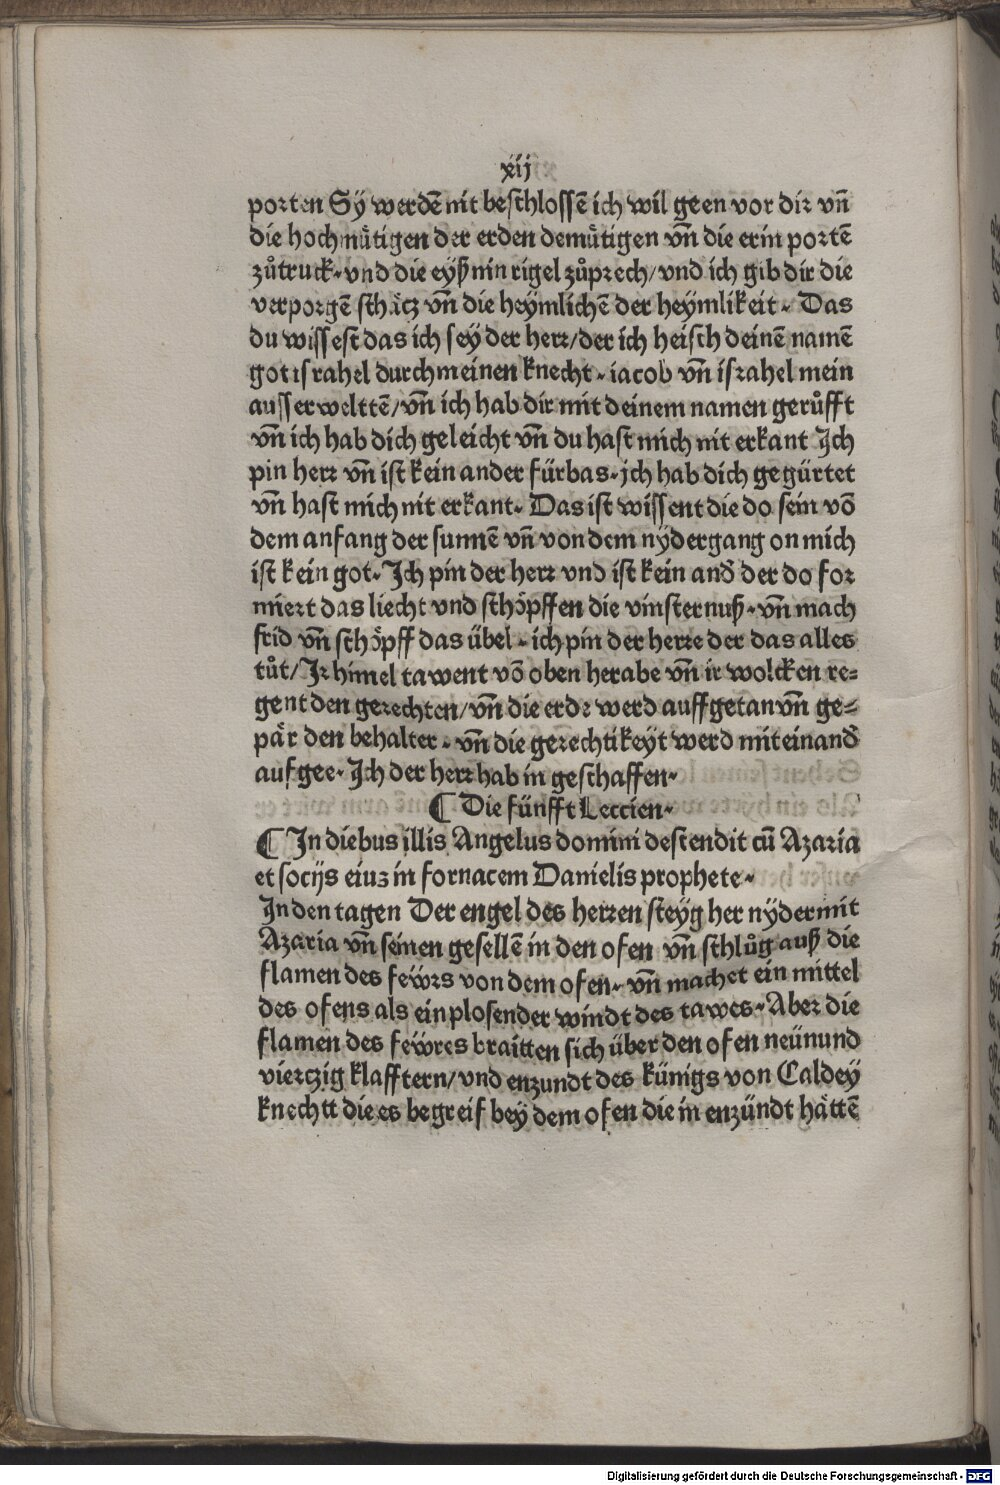 xij
porten Sÿ werdē nit beschlossē ich wil geen vor dir vn̄
die hochmütigen der erden demütigen vn̄ die erin portē
zůtruck · vnd die eyßnin rigel zůprech / vnd ich gib dir die
verporgē schätz vn̄ die heÿmlichē der heÿmlikeit · Das
du wissest das ich seÿ der herr / der ich heisch deinē namē
got israhel durch meinen knecht · iacob vn̄ israhel mein
ausserweltē / vn̄ ich hab dir mit deinem namen gerůfft
vn̄ ich hab dich geleicht vn̄ du hast mich nit erkant Ich
pin herr vn̄ ist kein ander fürbas · ich hab dich gegürtet
vn̄ hast mich nit erkant · Das ist wissent die do sein vō
dem anfang der sunnē vn̄ von dem nÿdergang on mich
ist kein got · Ich pin der herr vnd ist kein and̄ der do for
miert das liecht vnd schöpffen die vinsternuß · vn̄ mach
frid vn̄ schöpff das übel · ich pin der herre der das alles
tůt / Ir himel tawent vō oben herabe vn̄ ir wolcken re=
gent den gerechten / vn̄ die erdr werd auffgetan vn̄ ge=
pär den behalter · vn̄ die gerechtikeÿt werd miteinand̄
aufgee · Ich der herr hab in geschaffen ·
¶ Die fünfft Leccien ·
¶ In diebus illis Angelus domini descendit cū Azaria
et socijs eiuz in fornacem Danielis prophete ·
In den tagen Der engel des herren steÿg her nÿder mit
Azaria vn̄ seinen gesellē in den ofen vn̄ schlůg auß die
flamen des feẅrs von dem ofen · vn̄ machet ein mittel
des ofens als ein plosender windt des tawes · Aber die
flamen des feẅres braitten sich über den ofen neünund
vierczig klafftern / vnd enzundt des künigs von Caldeÿ
knechtt die es begreif beÿ dem ofen die in enzündt hättē
Digitalisierung gefördert durch die Deutsche Forschungsgemeinschaft - DFG